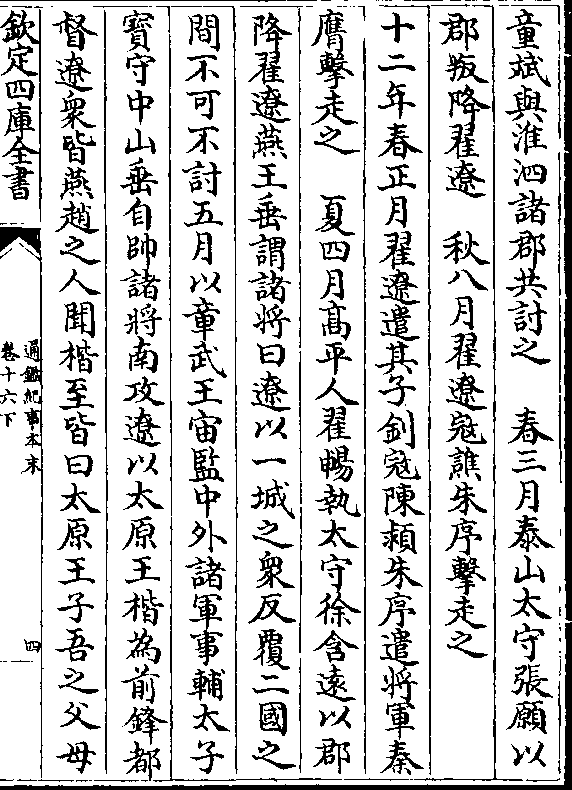 童斌與淮泗諸郡共討之　春三月泰山太守張願以
郡叛降翟遼　秋八月翟遼冦譙朱序擊走之
十二年春正月翟遼遣其子釗冦陳潁朱序遣將軍秦
膺擊走之　夏四月髙平人翟暢執太守徐含遠以郡
降翟遼燕王垂謂諸將曰遼以一城之衆反覆二國之
間不可不討五月以章武王宙監中外諸軍事輔太子
寳守中山垂自帥諸將南攻遼以太原王楷為前鋒都
督遼衆皆燕趙之人聞楷至皆曰太原王子吾之父母
欽定四庫全書
通鑑紀事本末
卷十六下
四